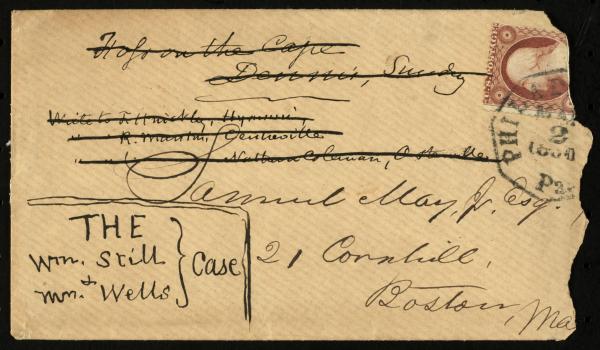 Hogs on the Cape
Dennis, Sunday
Write to F. Hinckley, Hyannis,
" " R. Marston, Centreville
" " Nathan Coleman, Osterville
Samuel May, Jr. Esq.
21 Cornhill,
Boston, Ma
THE
Wm. Still
& Wells
Case
PHI
2
Pa